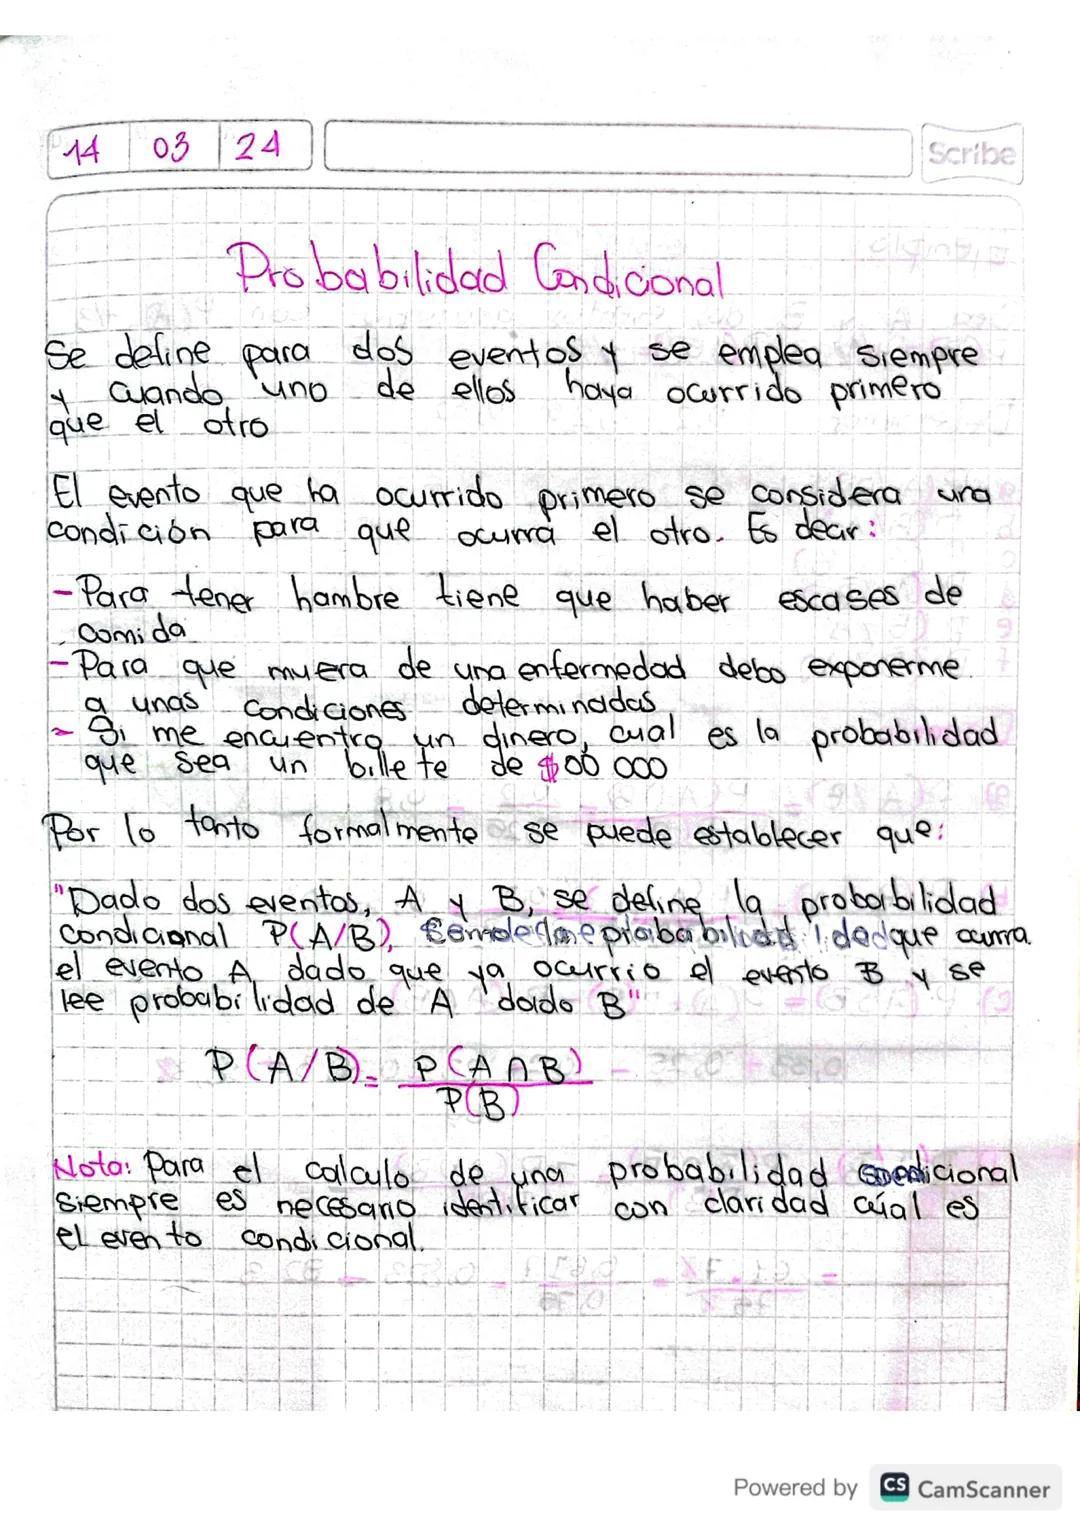 14 03 24
Scribe
Probabilidad Condicional
Se define para dos eventos y se emplea siempre
y cuando uno de ellos haya ocurrido primero
que el otro
El evento que ha ocurrido primero se considera una
condición para que ocurra el otro. Es decir:
- Para tener hambre tiene que haber escases de
comida
- Para que muera de una enfermedad debo exponerme
a unas condiciones determinadas
- Si me encuentro un dinero, cual es la probabilidad
que sea un billete de $00 000
Por lo tanto formalmente se puede establecer que:
"Dado dos eventos, A y B, se define la probabilidad
condicional P(A/B), probabilidad que ocurra
el evento A dado que ya ocurrio el evento B y se
lee probabilidad de A dado B"
P(A/B) = P(A ∩ B)
P(B)
Nota: Para el calculo de una probabilidad condicional
siempre es necesario identificar con claridad cúal es
el evento condicional.
Powered by CS CamScanner